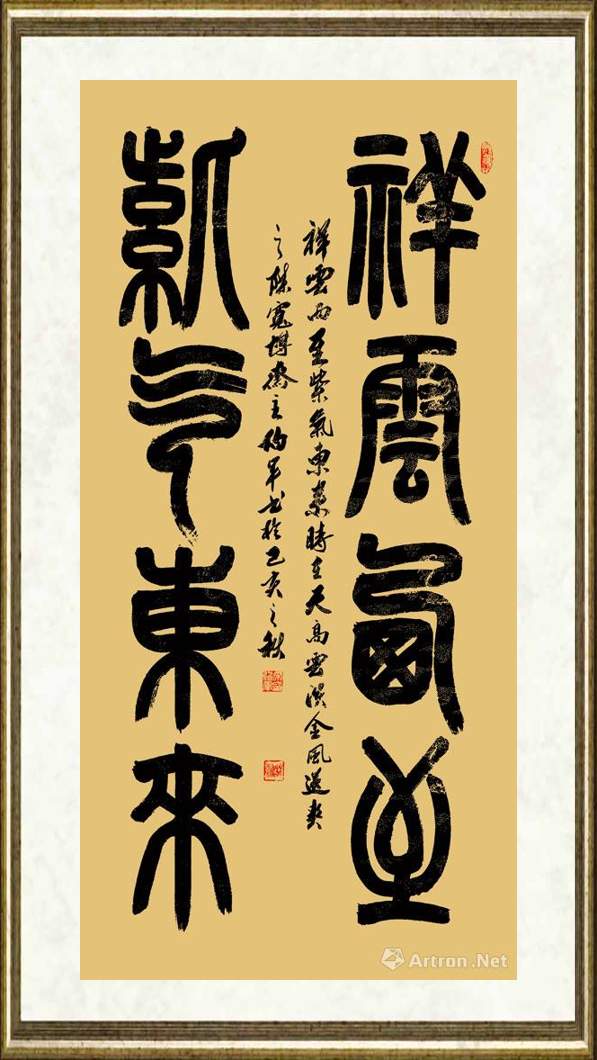 祥雲西至
祥雲西至紫氣東來時在天高雲淡金風送爽
之際寬博齋主
書於己亥之秋
紫气東來
Artron.Net